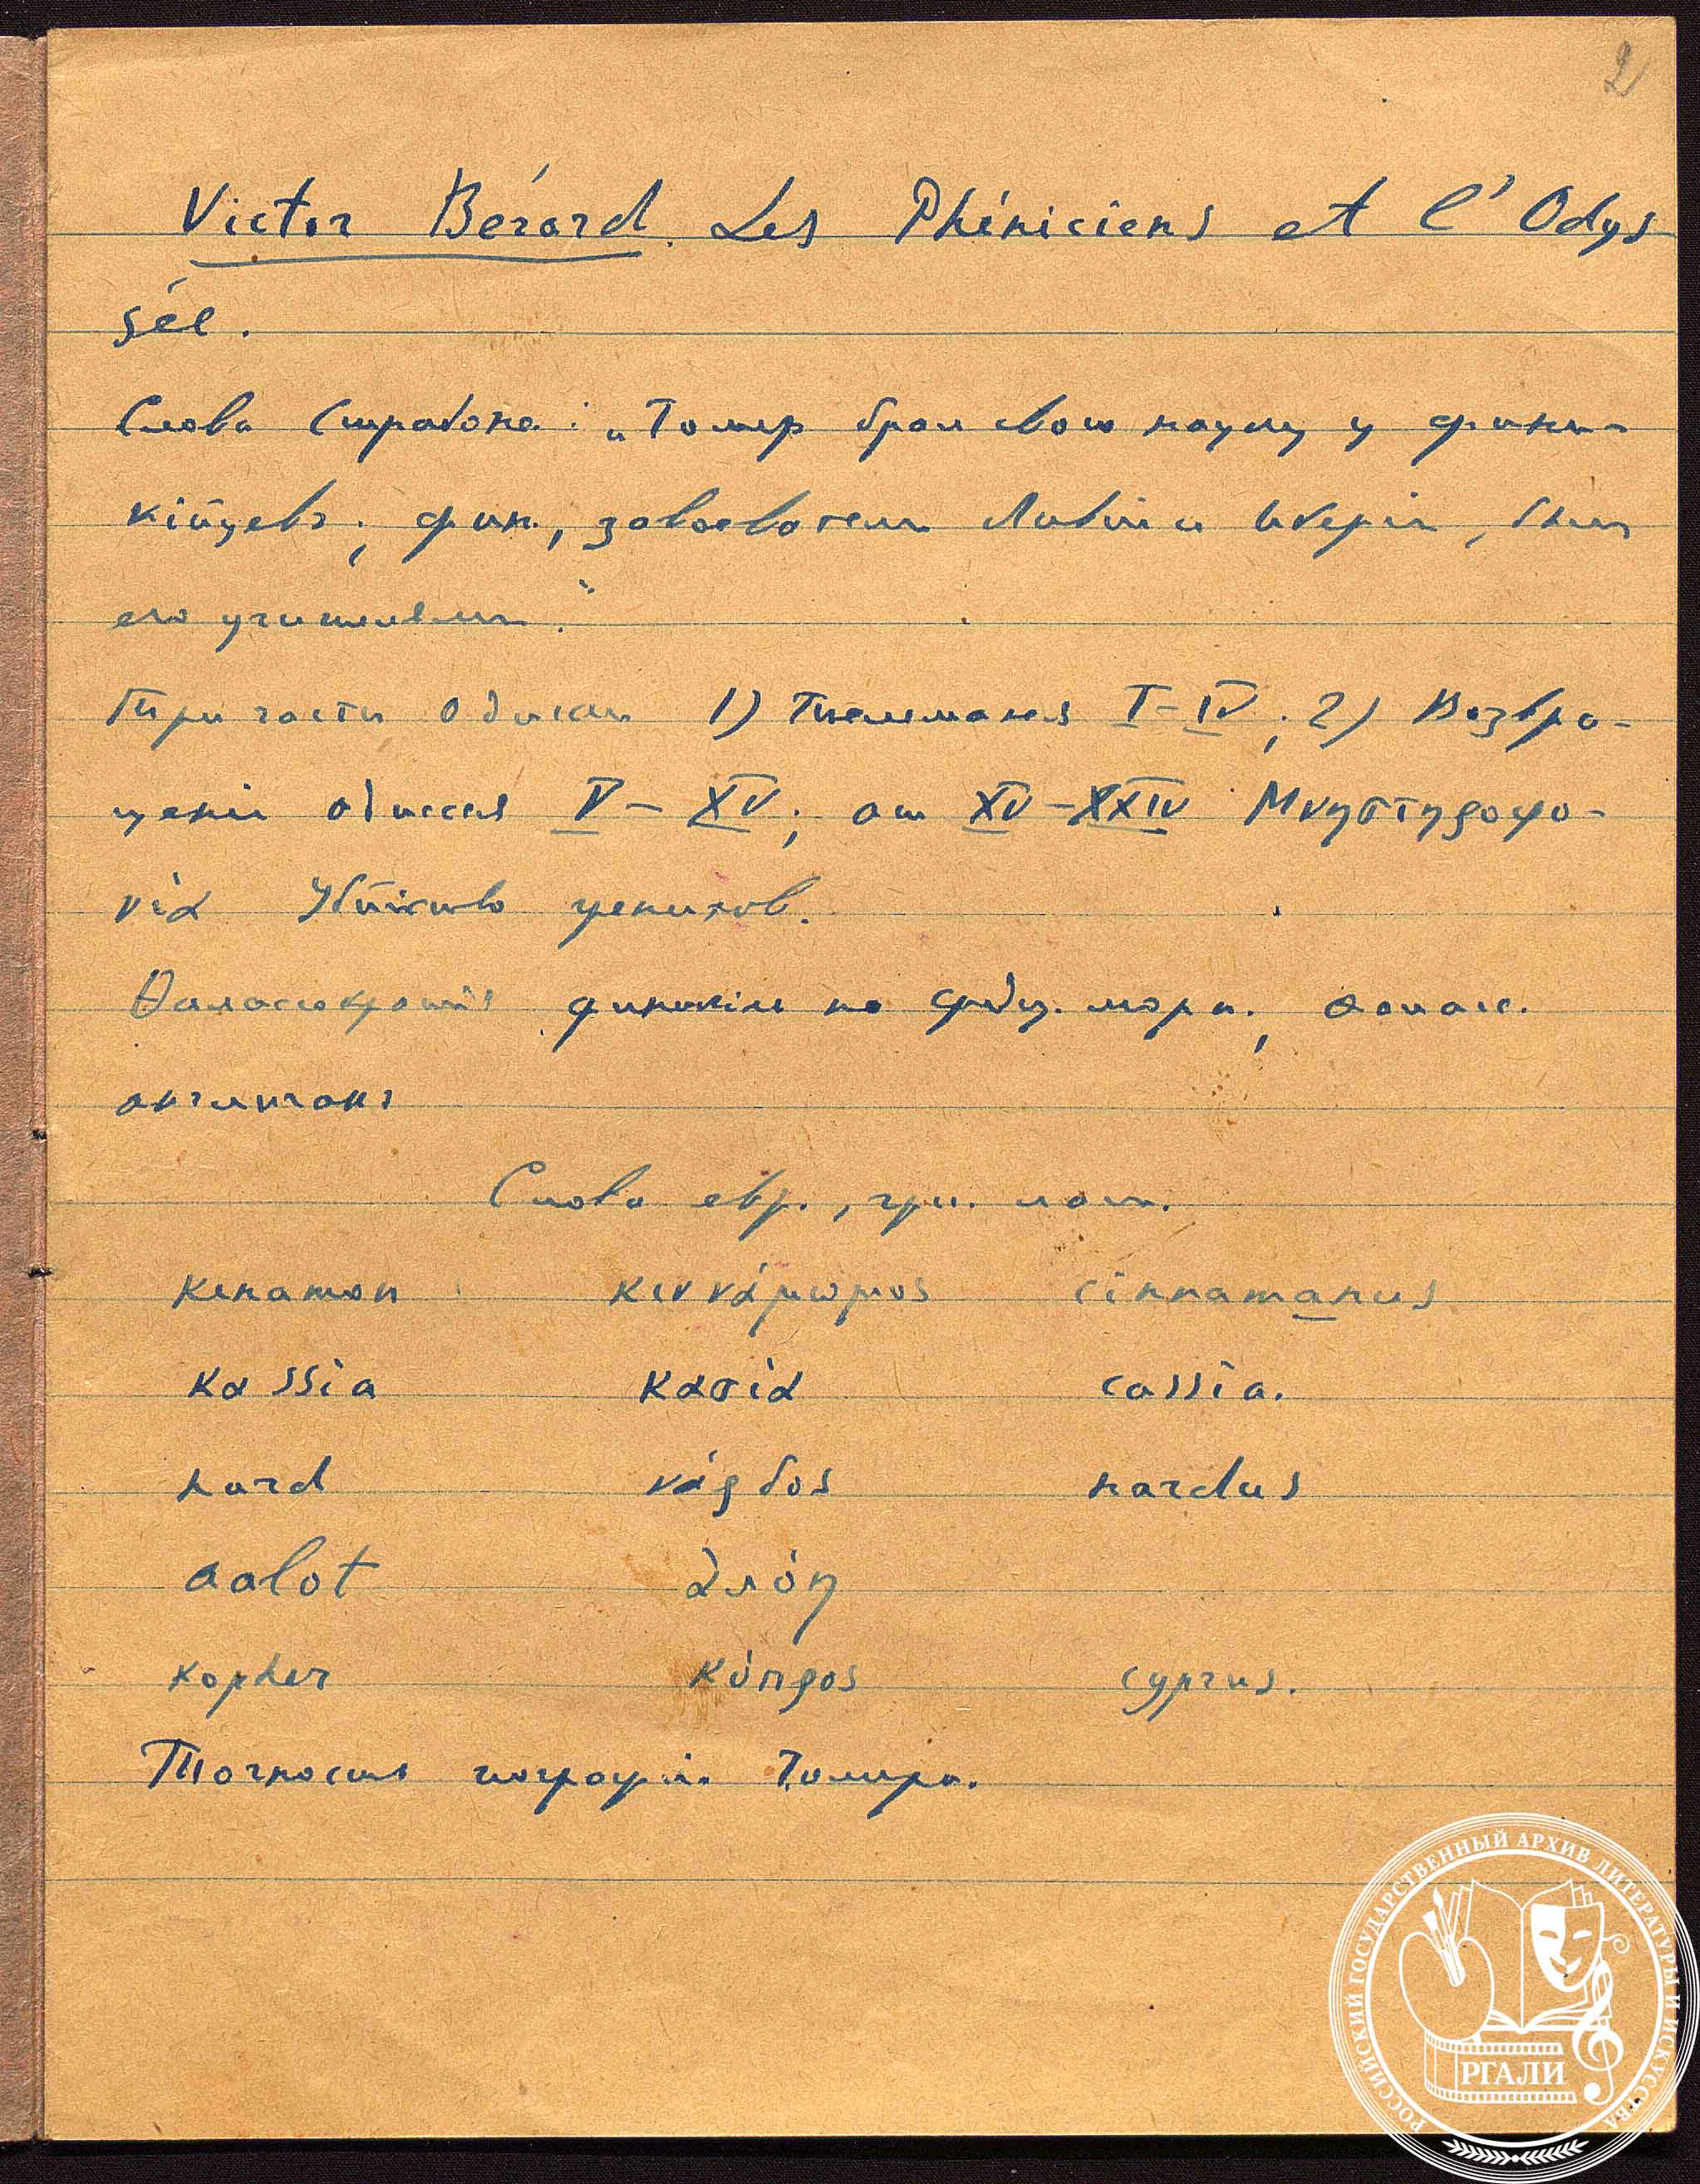 2
Victor Bérard. Les Phéniciens et l'Odys
sée.
Слова Страбона: „Гомер брал свою науку у фини-
кійцевъ; фин., завоеватели Ливіи и Иберіи, были
его учителями."
Три части Одиссеи 1) Телемакея I–IV; 2) Возвра-
щеніе Одиссея V–XV; от XV–XXIV Μνηστηροφο-
νία Убійство женихов.
Θалассократія финикіян по средиз. морю;
англичанъ
Слова евр., греч. лат.
kenamon κιννάμωμος cinnamanus
kassia κασία cassia.
nard νάρδος nardus
aalot ἀλόη
kopher κύπρος cyprus.
Точность географіи Гомера.
РОССИЙСКИЙ ГОСУДАРСТВЕННЫЙ АРХИВ ЛИТЕРАТУРЫ И ИСКУССТВА
РГАЛИ